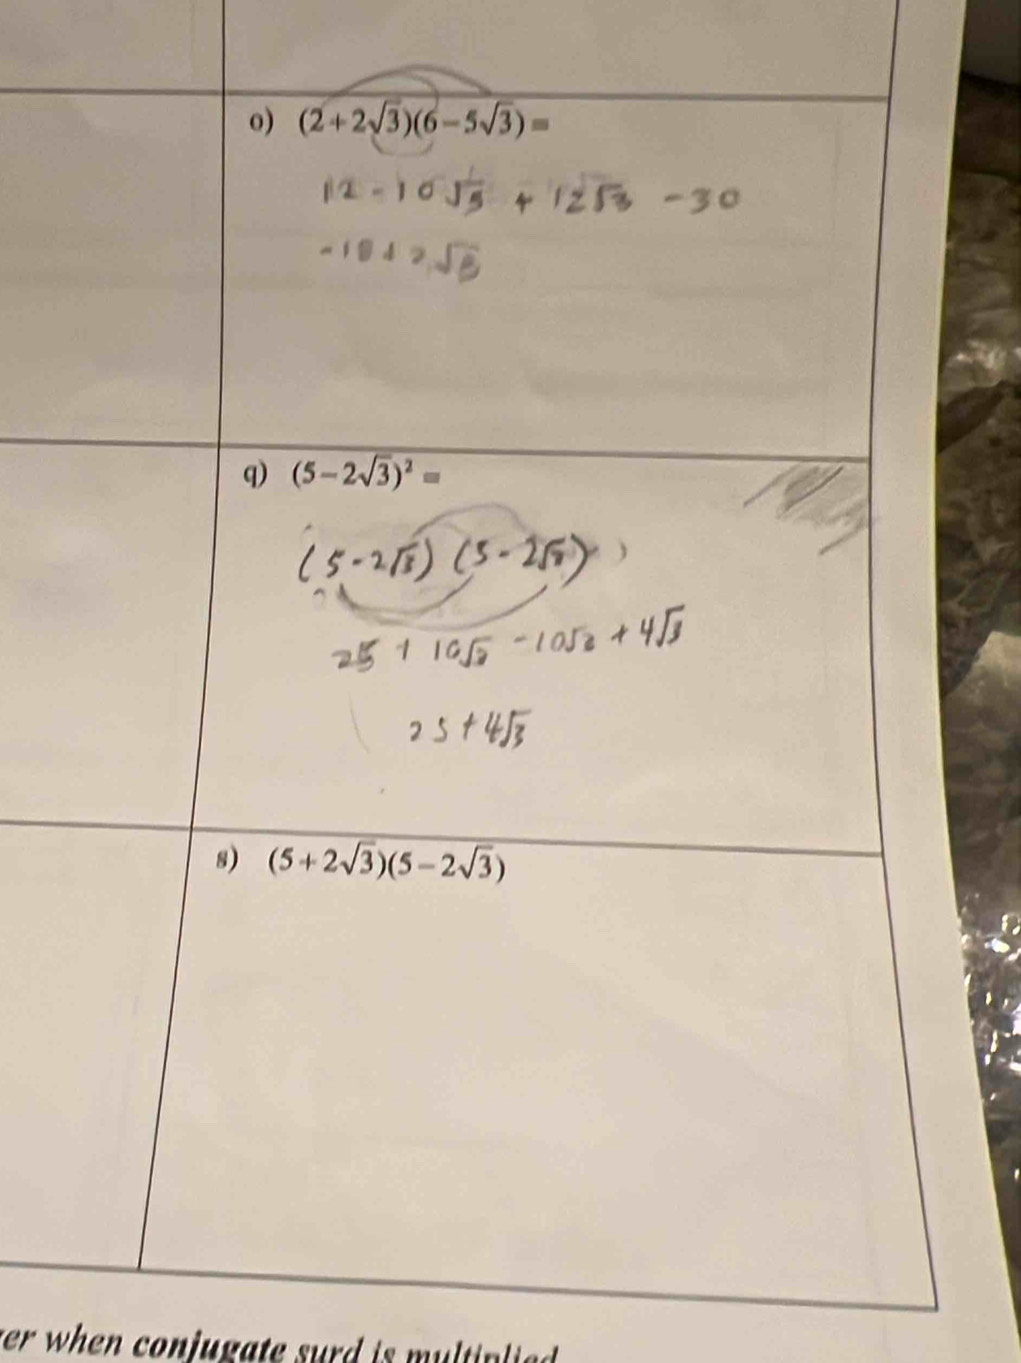 o) (2+2√3)(6-5√3) =
12 - 10√3 + 12√3 - 30
-18 + 2√3
q) (5-2√3)² =
(5-2√3) (5-2√3)
25 + 10√3 - 10√3 + 4√3
25 + 4√3
s) (5+2√3)(5-2√3)
er when conjugate surd is multiplied